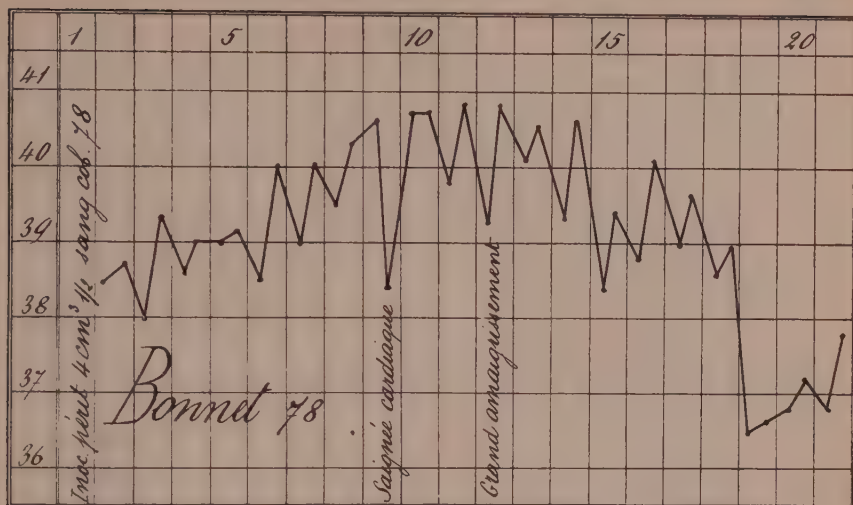 1 5 10 15 20
41
40
39
38
37
36
Inoc. périt 4 cm³ 1/2 sang cob. 78
Bonnet 78
Saignée cardiaque
Grand amaigrissement